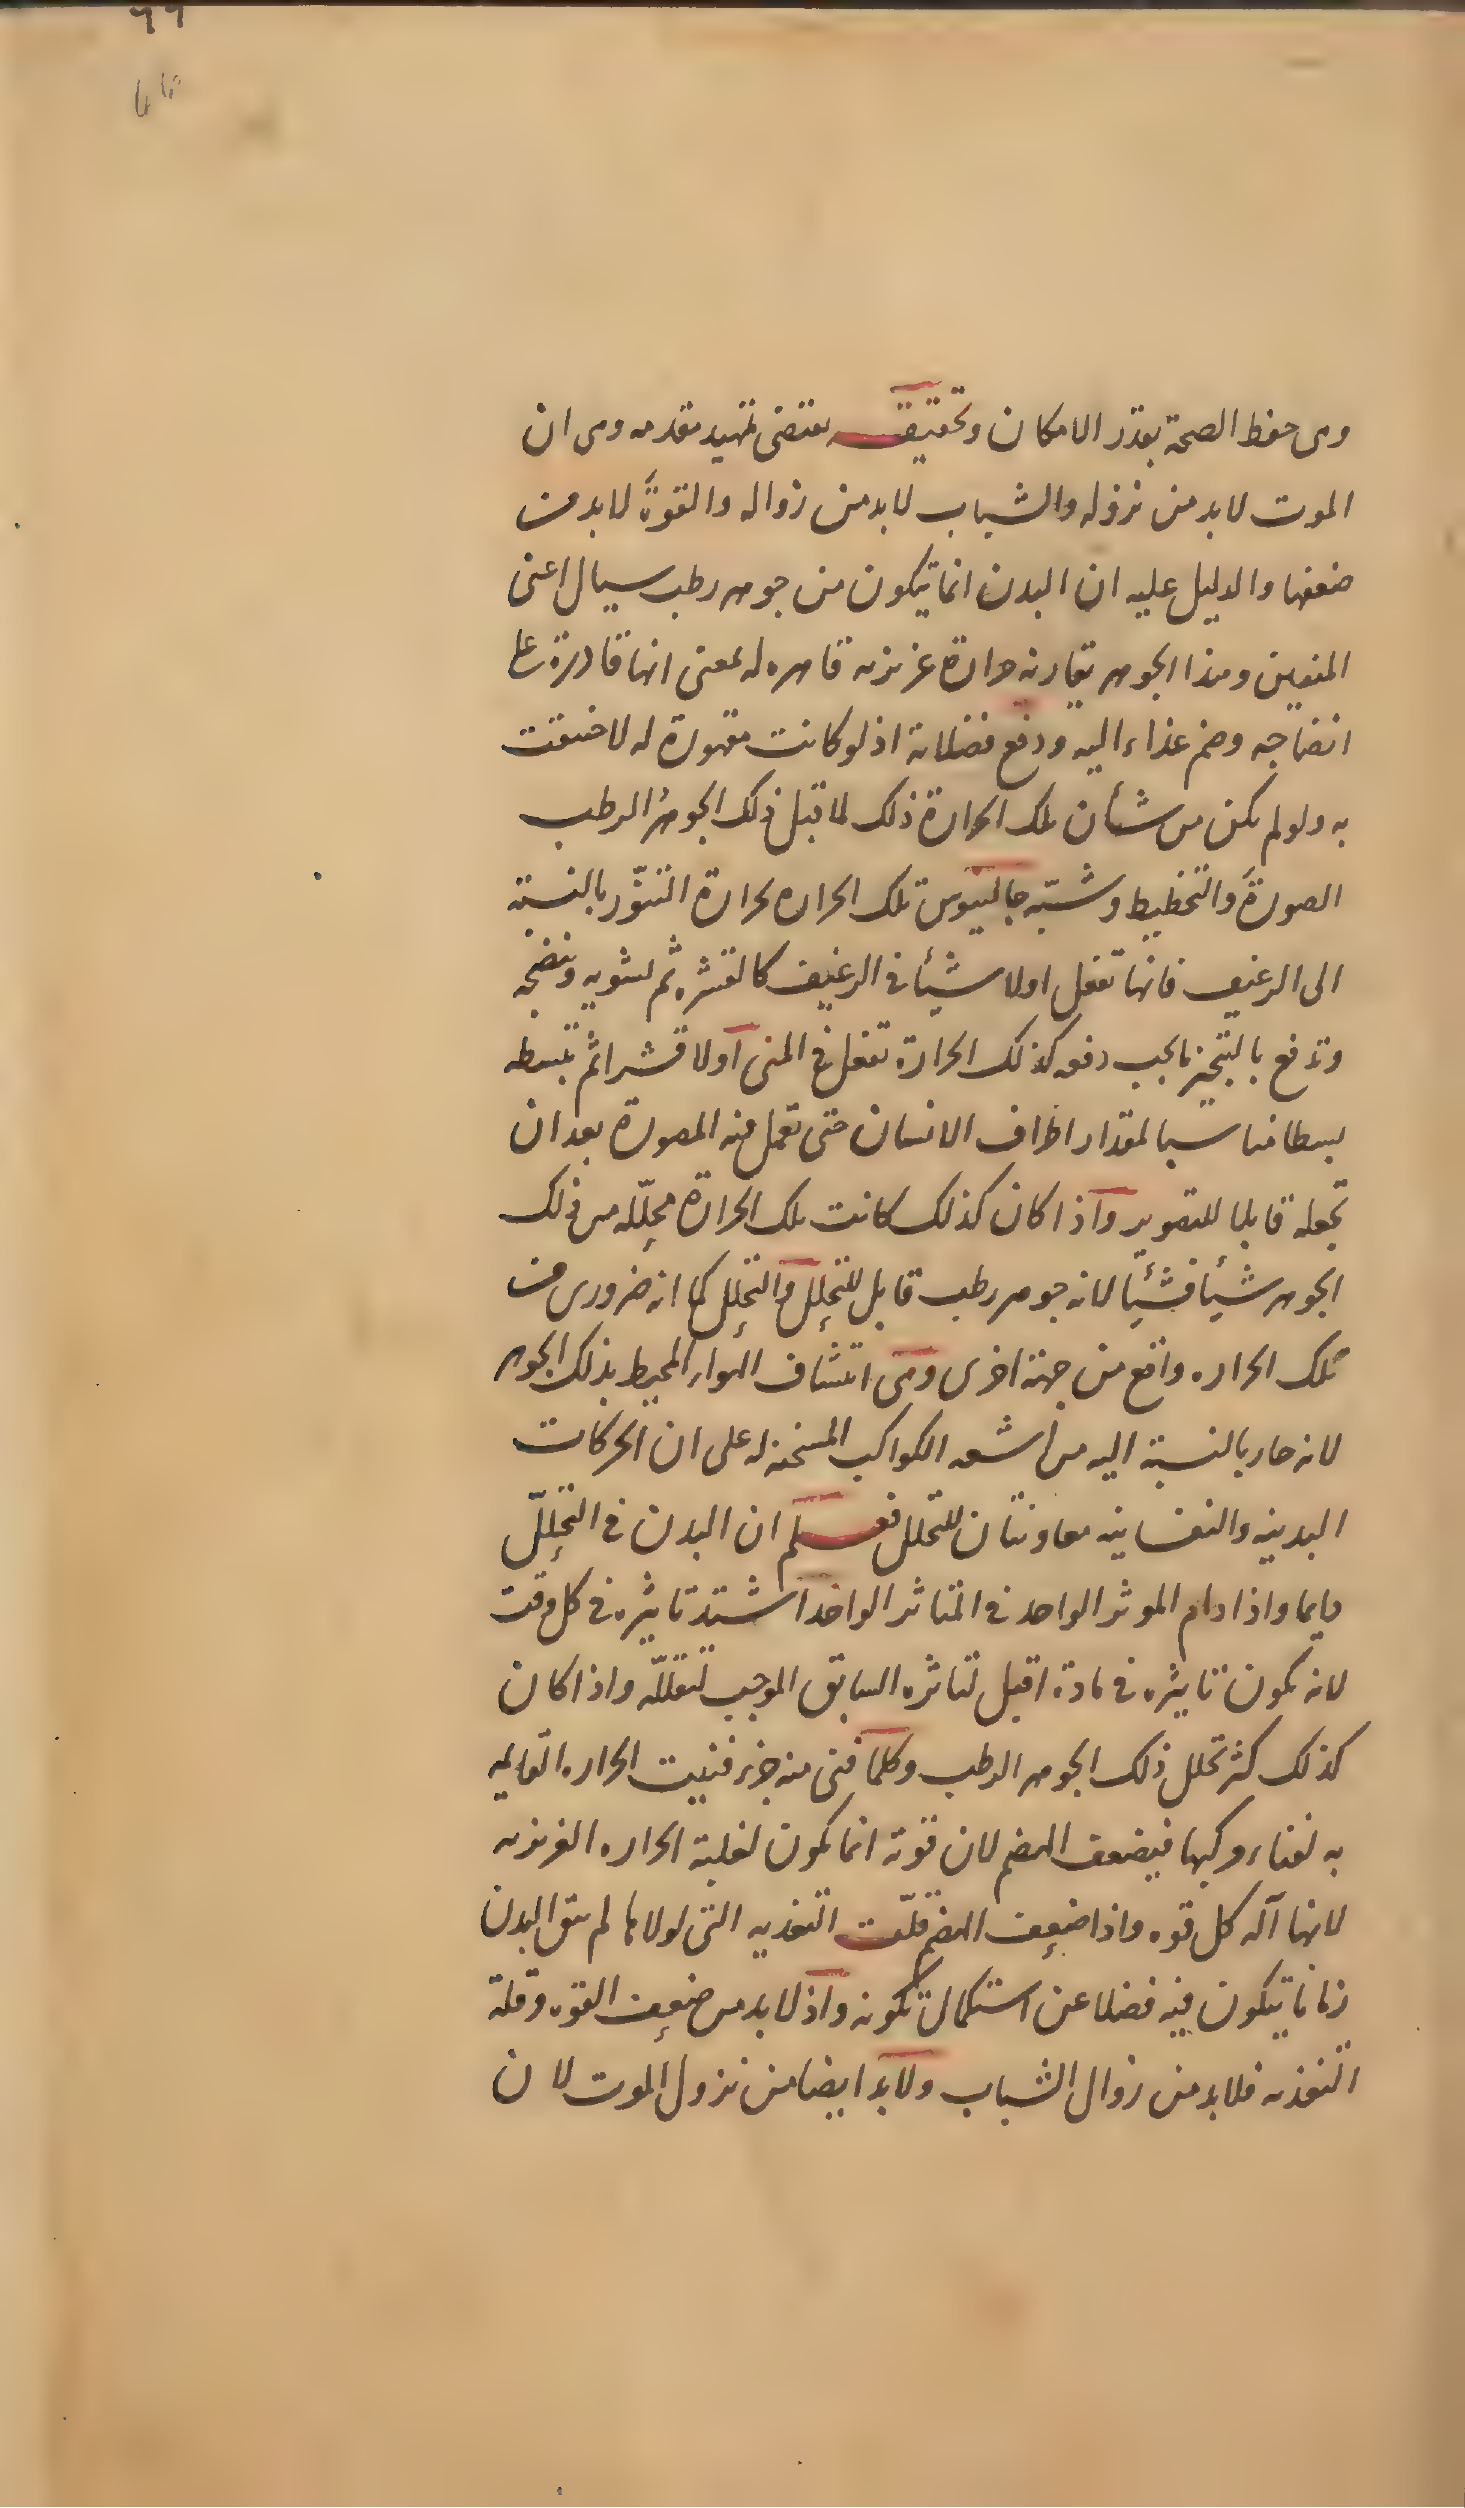 ٦٦
وهى حفظ الصحة بقدر الامكان وتحقيقه يقتضى تمهيد مقدمه وهى ان
الموت لابد من نزوله والشباب لابد من زواله والقوة لابد من
ضعفها والدليل عليه ان البدن انما يتكون من جوهر رطب سيال اعنى
المنيين وهذا الجوهر يقارنه حرارة غريزيه قاهره له بمعنى انها قادرة على
انضاجه وضم غذاء اليه ودفع فضلاته اذ لو كانت مقهورة له لاختنقت
به ولو لم يكن من شأن تلك الحرارة ذلك لما قبل ذلك الجوهر الرطب
الصورة والتخطيط وشبّه جالينوس تلك الحراره بحرارة التنّور بالنسبة
الى الرغيف فانها تفعل اولا شيأ فى الرغيف كالقشره ثم تشويه وتنضجه
وتدفع بالتبخير ما يجب دفعه كذلك الحرارة تفعل فى المنى اولا قشرا ثم تبسطه
بسطا مناسبا لمقدار اطراف الانسان حتى تعمل فيه المصورة بعد ان
تجعله قابلا للتصوير واذا كان كذلك كانت تلك الحرارة محلّله من ذلك
الجوهر شيأ فشيأ لانه جوهر رطب قابل للتحلل والتحلل كما انه ضرورى من
تلك الحراره واقع من جهة اخرى وهى انتشاف الهواء المحيط بذلك الجوهر
لانه حار بالنسبة اليه من اشعه الكواكب المسخنه له على ان الحركات
البدنيه والنفسانيه معاونتان للتحلل فعلم ان البدن فى التحلّل
دايما واذا دام الموثر الواحد فى المتاثر الواحد اشتد تاثيره فى كل وقت
لانه يكون تاثيره فى مادة اقبل لتاثره السابق الموجب لتقلّله واذا كان
كذلك كثر تحلل ذلك الجوهر الرطب وكلما فنى منه جزء فنيت الحراره القايمه
به لفناء مركبها فيضعف الهضم لان قوته انما يكون لغلبة الحراره الغريزيه
لانها آله كل قوه واذا ضعف الهضم قلّت التغذيه التى لولاها لم يبق البدن
زمانا يتكون فيه فضلا عن استكمال تكونه واذ لابد من ضعف القوه وقلة
التغذيه فلابد من زوال الشباب ولابد ايضا من نزول الموت لان